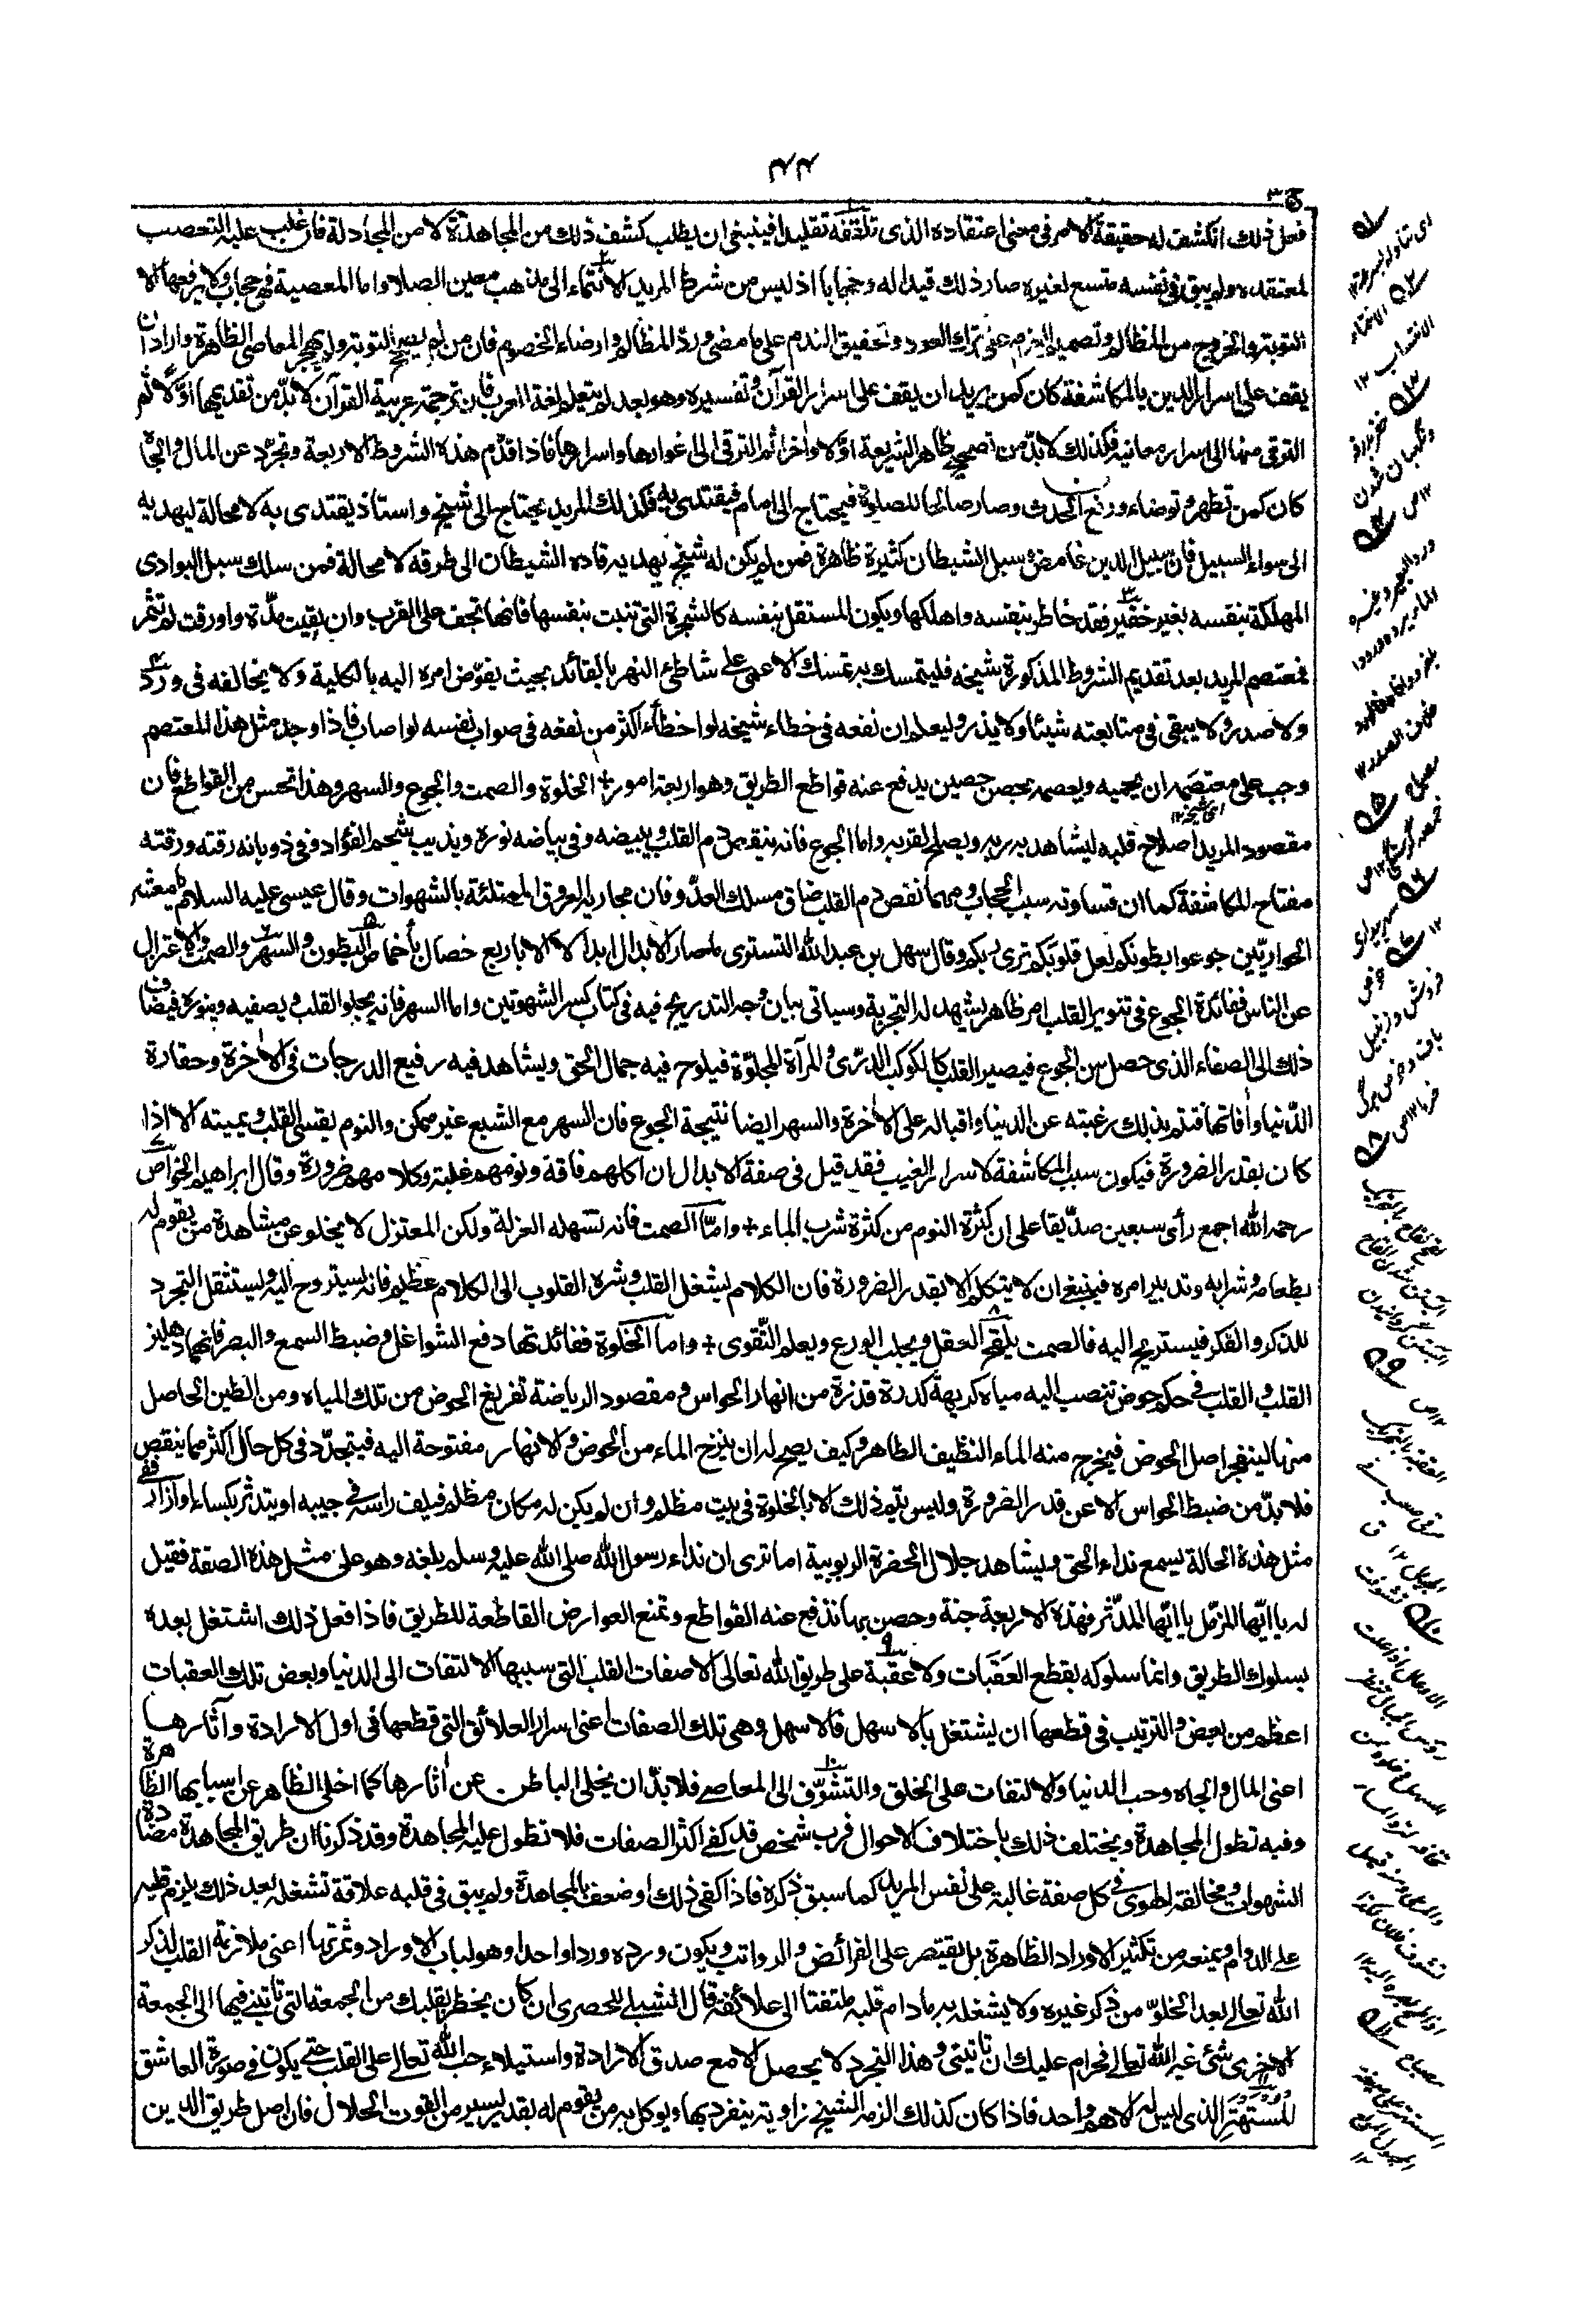 ٤٤
ج ٣
فعل ذلك انكشف له حقيقة الامر في معنى اعتقاده الذي تلقفه تقليدا فينبغي ان يطلب كشف ذلك من المجاهدة لا من المجادلة فان غلب عليه التعصب
لمعتقده ولم يبق في نفسه متسع لغيره صار ذلك قيدا له وحجابا اذ ليس من شرط المريد الانتماء الى مذهب معين اصلا واما المعصية فهي حجاب ولا يرفعها الا
التوبة والخروج من المظالم وتصميم العزم على ترك العود وتحقيق الندم على ما مضى ورد المظالم وارضاء الخصوم فان من لم يصح التوبة ولم يهجر المعاصي الظاهرة واراد ان
يقف على اسرار الدين بالمكاشفة كان كمن يريد ان يقف على اسرار القرآن وتفسيره وهو بعد لم يتعلم لغة العرب فان ترجمة عربية القرآن لا بدّ من تقديمها اوّلا ثم
الترقي منها الى اسرار معانيه فكذلك لا بدّ من تصحيح ظاهر الشريعة اوّلا وآخرا ثم الترقي الى اغوارها واسرارها فاذا قدّم هذه الشروط الاربعة وتجرّد عن المال والجاه
كان كمن تطهر وتوضاء ورفع الحدث وصار صالحا للصلوة فيحتاج الى امام فيقتدى به فكذلك المريد يحتاج الى شيخ واستاذ يقتدى به لا محالة ليهديه
الى سواء السبيل فان سبيل الدين غامض وسبل الشيطان كثيرة ظاهرة فمن لم يكن له شيخ يهديه قاده الشيطان الى طرقه لا محالة فمن سلك سبل البوادى
المهلكة بنفسه بغير خفير فقد خاطر بنفسه واهلكها ويكون المستقل بنفسه كالشجرة التى تنبت بنفسها فانها تجف على القرب وان بقيت مدّة واورقت لم تثمر
فمعتصم المريد بعد تقديم الشروط المذكورة شيخه فليتمسك به تمسك الاعمى على شاطئ النهر بالقائد بحيث يفوّض امره اليه بالكلية ولا يخالفه فى ورد
ولا صدر ولا يبقى فى متابعته شيئا ولا يذر وليعلم ان نفعه فى خطاء شيخه لو اخطأ اكثر من نفعه فى صواب نفسه لو اصاب فاذا وجد مثل هذا المعتصم
وجب على معتصمه ان يحميه ويعصمه بحصن حصين يدفع عنه قواطع الطريق وهو اربعة امور + الخلوة والصمت والجوع والسهر وهذا تحصن من القواطع فان
اى شيخه ١٢
مقصود المريد اصلاح قلبه ليشاهد به ربه ويصلح لقربه واما الجوع فانه ينقص دم القلب ويبيضه وفى بياضه نوره ويذيب شحم الفؤاد وفى ذوبانه رقته ورقته
مفتاح المكاشفة كما ان قساوته سبب الحجاب ومهما نقص دم القلب ضاق مسلك العدّو فان مجاريه العروق الممتلئة بالشهوات وقال عيسى عليه السلام يا معشر
الحواريّين جوعوا بطونكم لعل قلوبكم ترى ربكم وقال سهل بن عبد الله التسترى ما صار الابدال ابدالا الا باربع خصال باخماص البطون والسهر والصمت والاعتزال
عن الناس ففائدة الجوع فى تنوير القلب امر ظاهر يشهد له التجربة وسياتى بيان وجه التدريج فيه فى كتاب كسر الشهوتين واما السهر فانه يجلو القلب ويصفيه وينوره فيضاف
ذلك الى الصفاء الذى حصل من الجوع فيصير القلب كالكوكب الدرّى والمرآة المجلوّة فيلوح فيه جمال الحق ويشاهد فيه رفيع الدرجات فى الآخرة وحقارة
الدّنيا وآفاتها فتتم بذلك رغبته عن الدنيا واقباله على الآخرة والسهر ايضا نتيجة الجوع فان السهر مع الشبع غير ممكن والنوم يقسى القلب ويميته الا اذا
كان بقدر الضرورة فيكون سبب المكاشفة لاسرار الغيب فقد قيل فى صفة الابدال ان اكلهم فاقة ونومهم غلبة وكلامهم ضرورة وقال ابراهيم الخواص
رحمه الله اجمع رأى سبعين صدّيقا على ان كثرة النوم من كثرة شرب الماء + وامّا الصمت فانه تسهله العزلة ولكن المعتزل لا يخلو عن مشاهدة من يقوم له
بطعامه وشرابه وتدبير امره فينبغى ان لا يتكلم الا بقدر الضرورة فان الكلام يشغل القلب وشره القلوب الى الكلام عظيم فانه يستروح اليه ويستثقل التجرد
للذكر والفكر فيستريح اليه فالصمت يلقح العقل ويجلب الورع ويعلم التّقوى + واما الخلوة ففائدتها دفع الشواغل وضبط السمع والبصر فانهما دهليز
القلب والقلب فى حكم حوض تنصب اليه مياه كريهة كدرة قذرة من انهار الحواس ومقصود الرياضة تفريغ الحوض من تلك المياه ومن الطين الحاصل
منها لينفجر اصل الحوض فيخرج منه الماء النظيف الطاهر وكيف يصح له ان ينزح الماء من الحوض والانهار مفتوحة اليه فيتجدّد فى كل حال اكثر مما ينقص
فلا بدّ من ضبط الحواس الا عن قدر الضرورة وليس يتم ذلك الا بالخلوة فى بيت مظلم وان لم يكن له مكان مظلم فيلف راسه فى جيبه او يتدثر بكساء او ازار ففى
مثل هذه الحالة يسمع نداء الحق ويشاهد جلال الحضرة الربوبية اما ترى ان نداء رسول الله صلى الله عليه وسلم بلغه وهو على مثل هذه الصفة فقيل
له يا ايّها المزمّل يا ايّها المدّثر فهذه الاربعة جنة وحصن بها تندفع عنه القواطع وتمنع العوارض القاطعة للطريق فاذا فعل ذلك اشتغل بعده
بسلوك الطريق وانما سلوكه بقطع العَقَبات ولا عقبة على طريق الله تعالى الا صفات القلب التى سببها الالتفات الى الدنيا وبعض تلك العقبات
اعظم من بعض والترتيب فى قطعها ان يشتغل بالاسهل فالاسهل وهى تلك الصفات اعنى اسرار العلائق التى قطعها فى اول الارادة وآثارها
اعنى المال والجاه وحب الدنيا والالتفات على الخلق والتشوّف الى المعاصى فلا بدّ ان يخلى الباطن عن آثارها كما اخلى الظاهر عن اسبابها الظاهرة
وفيه تطول المجاهدة ويختلف ذلك باختلاف الاحوال فرب شخص قد كفى اكثر الصفات فلا تطول عليه المجاهدة وقد ذكرنا ان طريق المجاهدة مضادة
الشهوات ومخالفة الهوى فى كل صفة غالبة على نفس المريد كما سبق ذكره فاذا كفى ذلك او ضعف بالمجاهدة ولم يبق فى قلبه علاقة تشغله بعد ذلك يلزم قلبه
على الدوام ويمنعه من تكثير الاوراد الظاهرة بل يقتصر على الفرائض والرواتب ويكون ورده وردا واحدا وهو لباب الاوراد وثمرتها اعنى ملازمة القلب لذكر
الله تعالى بعد الخلوّ من ذكر غيره ولا يشغله به مادام قلبه ملتفتا الى علائقه قال الشبلى للحصرى ان كان يخطر بقلبك من الجمعة التى تأتينى فيها الى الجمعة
الاخرى شئ غير الله تعالى فحرام عليك ان تاتينى وهذا التجرد لا يحصل الا مع صدق الارادة واستيلاء حب الله تعالى على القلب حتى يكون فى صورة العاشق
المستهتر الذى ليس له الا هم واحد فاذا كان كذلك الزمه الشيخ زاوية ينفرد بها ويوكل به من يقوم له بقدر يسير من القوت الحلال فان اصل طريق الدين